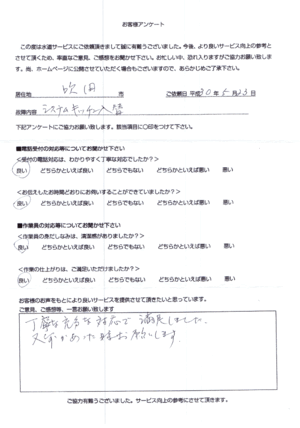 お客様アンケート
この度は水道サービスにご依頼頂きまして誠に有難うございました。今後、より良いサービス向上の参考と
させて頂くため、率直なご意見、ご感想をお聞かせ下さい。お忙しい中、恐れ入りますがご協力お願い致しま
す。尚、ホームページに公開させていただく場合もございますので、あらかじめご了承下さい。
居住地 吹田 市 ご依頼日 平成30年5月23日
故障内容 システムキッチン入替
下記アンケートにご協力お願い致します。該当項目に〇印をつけて下さい。
■電話受付の対応等についてお聞かせ下さい
<受付の電話対応は、わかりやすく丁寧な対応でしたか?>
良い どちらかといえば良い どちらでもない どちらかといえば悪い 悪い
<お伝えしたお時間どおりにお伺いすることができていましたか?>
良い どちらかといえば良い どちらでもない どちらかといえば悪い 悪い
■作業員の対応等についてお聞かせ下さい
<作業員の身だしなみは、清潔感がありましたか?>
良い どちらかといえば良い どちらでもない どちらかといえば悪い 悪い
<作業の仕上がりは、ご満足いただけましたか?>
良い どちらかといえば良い どちらでもない どちらかといえば悪い 悪い
お客様のお声をもとにより良いサービスを提供させて頂きたいと思っています。
ご意見、ご感想等、一言お願い致します
丁寧な 対応で 満足しました。
又 お願いします
ご協力有難うございました。サービス向上の参考にさせて頂きます。